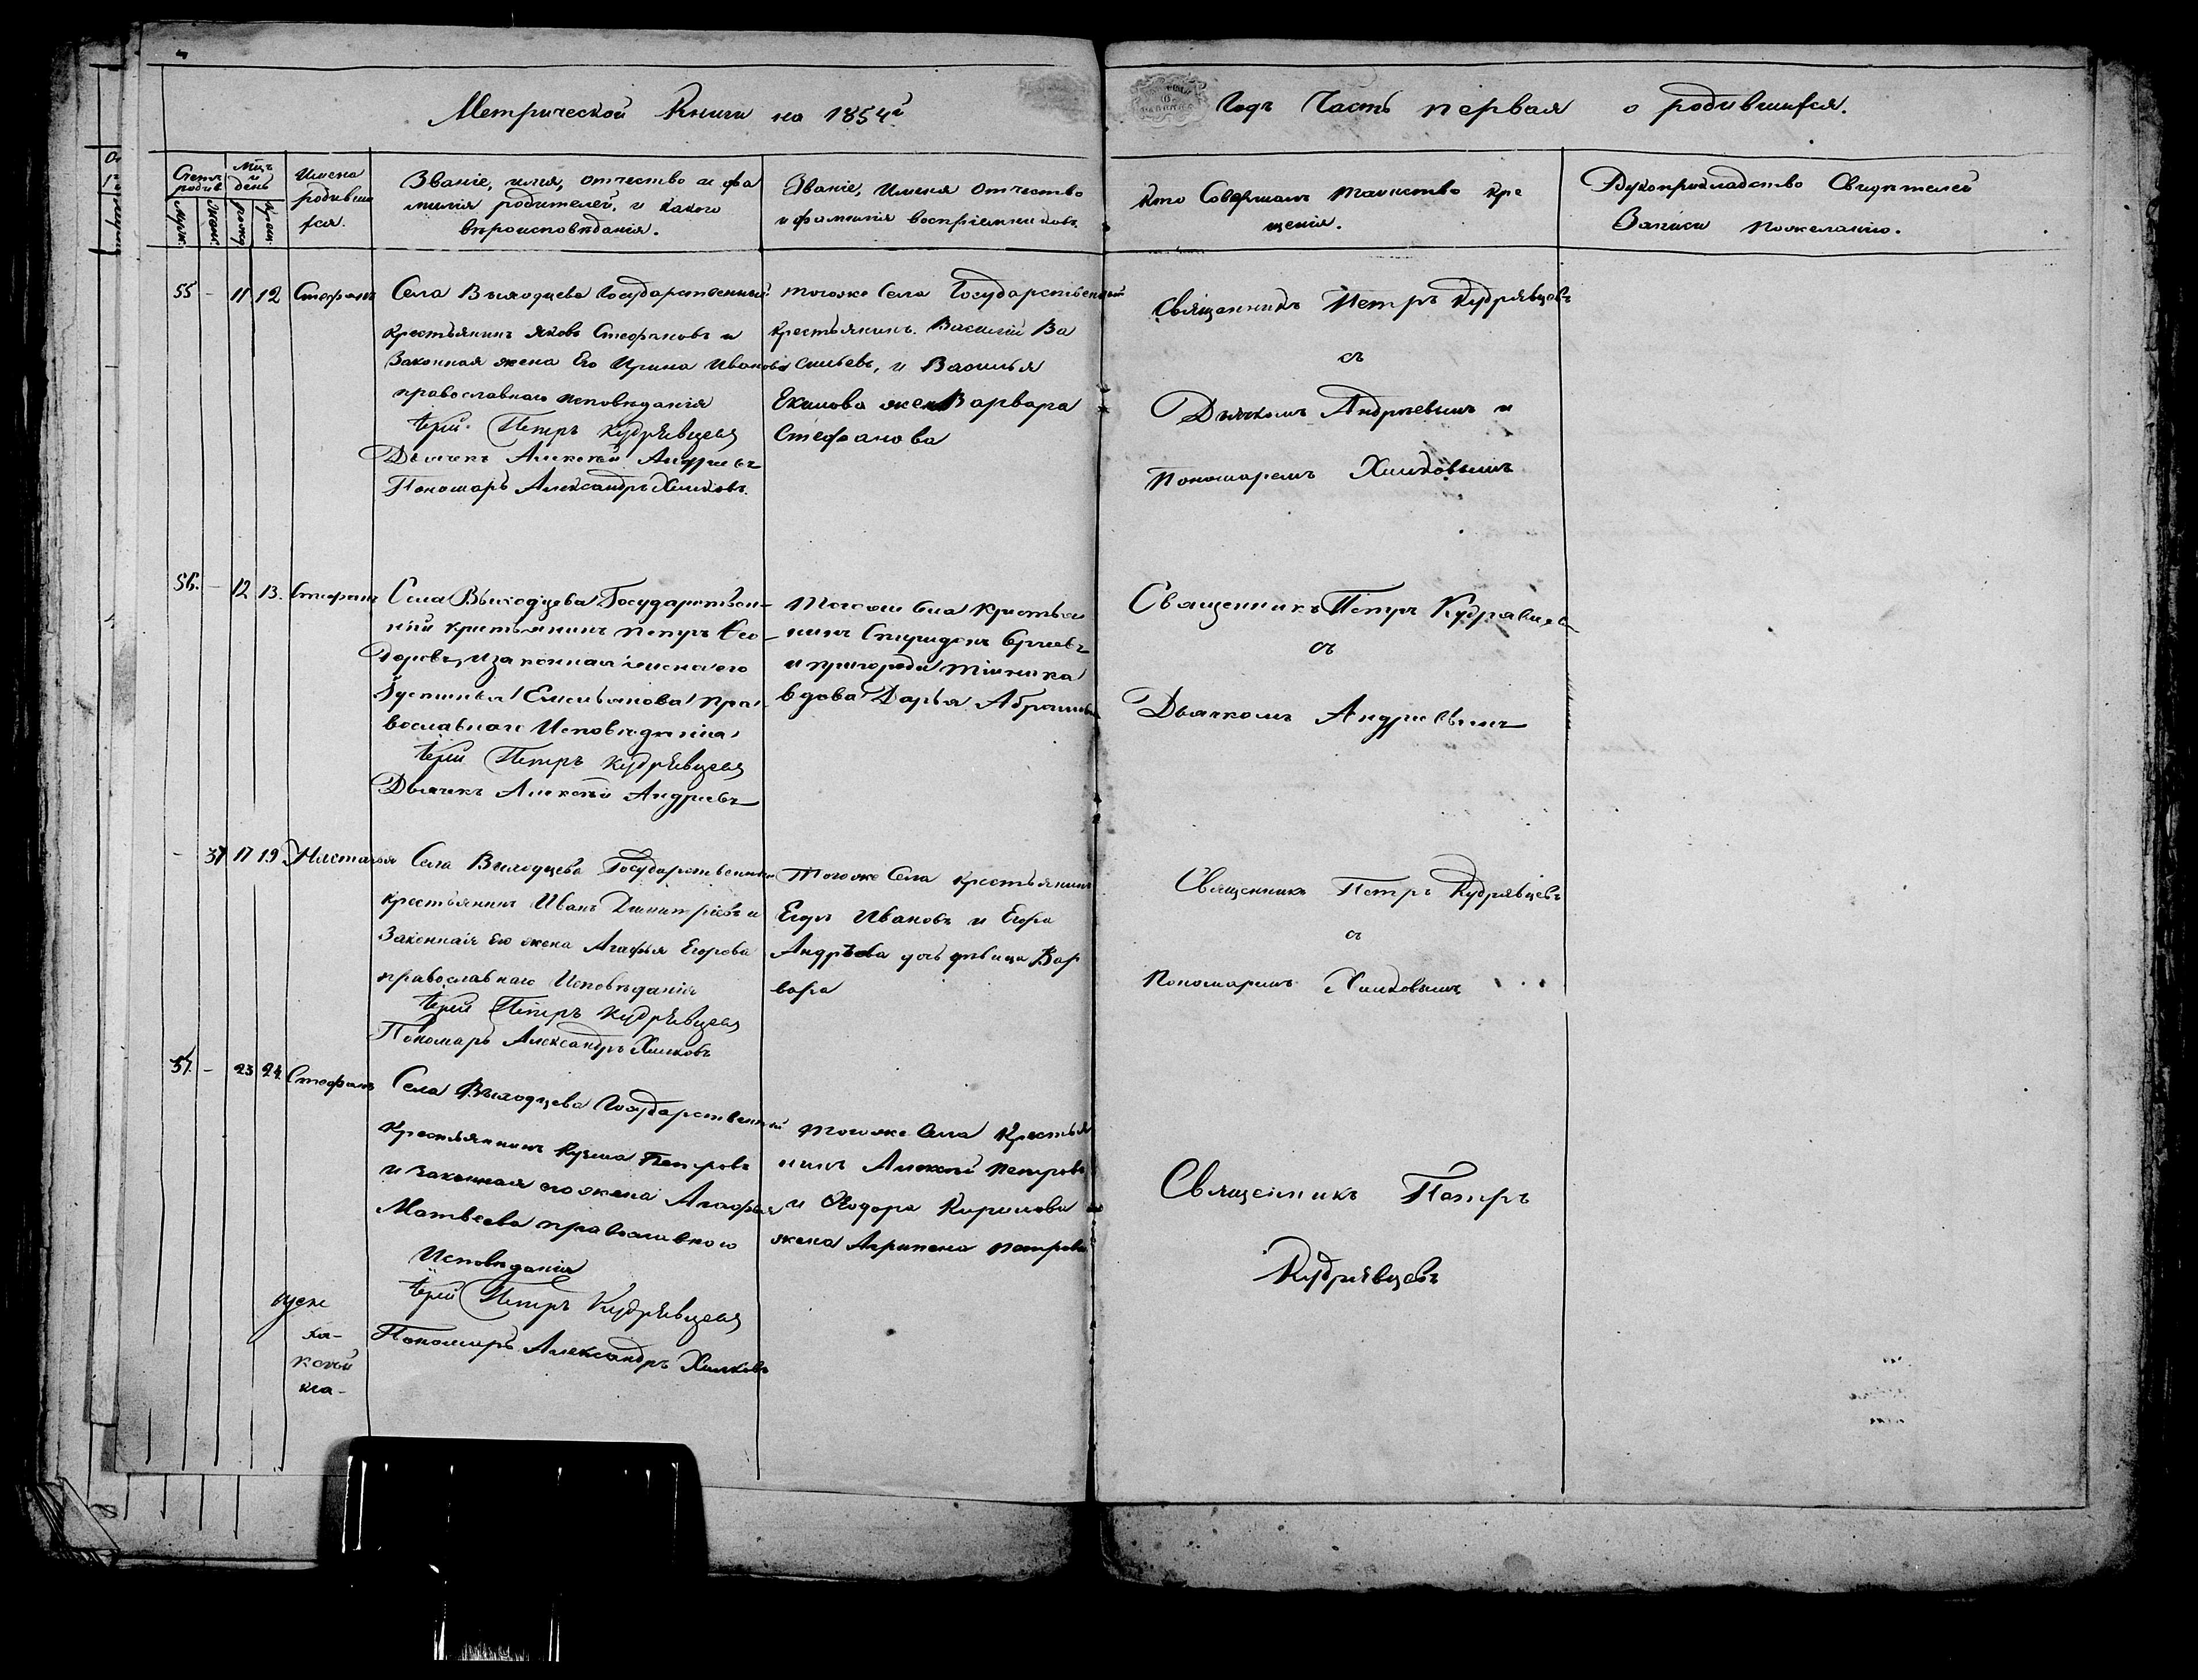 Метрической Книги на 1854й
Годъ Часть первая о родившихся.
Счетъ родив
Мцъ и день
Имена родивши хся.
Званіе, имя, отчество и фа
милія родителей, и какого
вѣроисповѣданія.
Званіе, Имяня Отчество
и фамилія воспріемниковъ.
Кто Совершалъ таинство кре
щенія.
Рукоприкладство Свидѣтелей
Записи пожеланію.
55 - 11 12 Стефанъ
Села Выходцева Государственный
крестьянинъ Яковъ Стефановъ и
Законная жена Его Ирина Иванова
православнаго исповѣданія
Іерей Петръ Кудрявцевъ
Дьячекъ Алексѣй Андреевъ
Пономарь Александръ Хилковъ.
тогоже Села Государственный
крестьянинъ Василій Ва
сильевъ, и Василья
Екимова жена Варвара
Стефанова
Священникъ Петръ Кудрявцевъ
съ
Дьячкомъ Андреевымъ и
Пономаремъ Хилковымъ
56. - 12 13. Стефанъ
Села Выходцева Государствен-
ный крестьянинъ Петръ Ѳео-
доровъ, и законная жена его
Іустинья Емельянова пра-
вославнаго Исповѣданія
Іерей Петръ Кудрявцевъ
Дьячекъ Алексѣй Андреевъ
Тогоже села крестья
нинъ Спиридонъ
и
вдова Дарья Абрамова
Священникъ Петръ Кудрявцев
съ
Дьячкомъ Андреевымъ
- 37 17 19 Анастасья
Села Выходцева Государственный
крестьянинъ Иванъ Димитріевъ и
Законная его жена Агафья Егорова
православнаго Исповѣданія
Іерей Петръ Кудрявцевъ
Пономарь Александръ Хилковъ
Тогоже Села крестьянинъ
Егоръ Ивановъ и Егора
Андрѣева дочь дѣвица Вар
вара
Священникъ Петръ Кудрявцевъ
съ
Пономаремъ Хилковымъ
57. - 23 24. Стефанъ
Села Выходцева Государственный
Крестьянинъ Кузма Петровъ
и Законная его жена Агафья
Матвеева православнаго
Исповѣданія
Іерей Петръ Кудрявцевъ
Пономарь Александръ Хилковъ
тогоже Села Крестья
нинъ Алексѣй Петровъ
и Ѳеодора Кирилова
жена Агрипена Петрова
Священникъ Петръ
Кудрявцевъ